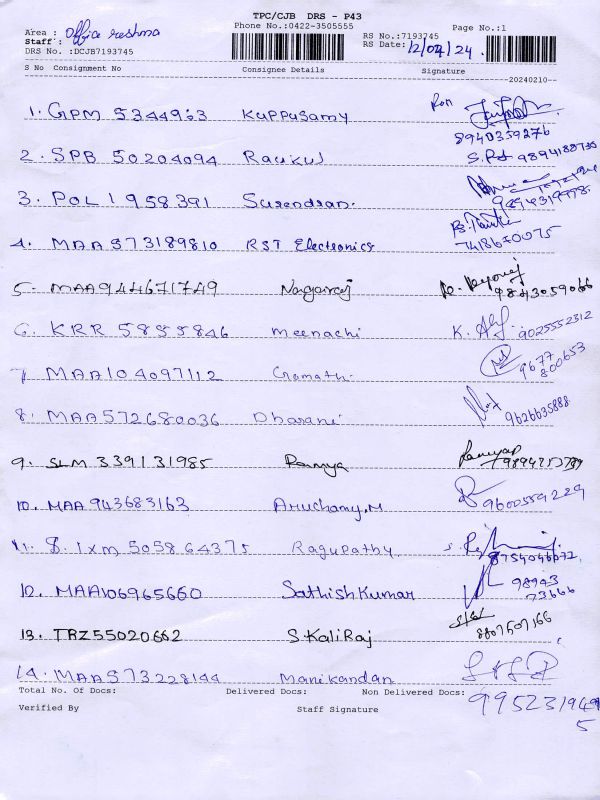 TPC/CJB DRS - P43
Phone No.:0422-3505555
Page No.:1
Area : Office reshma
Staff :
DRS No. :DCJB7193745
RS No.:7193745
RS Date: 12/02/24
S No Consignment No Consignee Details Signature
20240210
1. GPM 5344963 Kuppusamy
8940359276
2. SPB 50204094 Raukul 9894188735
3. POL 1958391 Surendran.
4. MAA573189810 RST Electronics
7418650075
5. MAA944671749 Nagaraj 9843059066
6. KRR 5855846 meenachi 9025552312
7 MAA104097112 Gomathi 9677
800653
8. MAA572680036 Dharani 9626635888
9. SLM 339131985 Ramya
10. MAA943683163 Aruchamy.M 9600559229
11. IXM 505864375 Ragupathy
8754046072
12. MAA106965660 Sathish Kumar 98943
73666
13. TRZ55020662 S Kali Raj 8807507166
14. MAA573228144 Manikandan
Total No. Of Docs: Delivered Docs: Non Delivered Docs:
995231949
5
Verified By Staff Signature